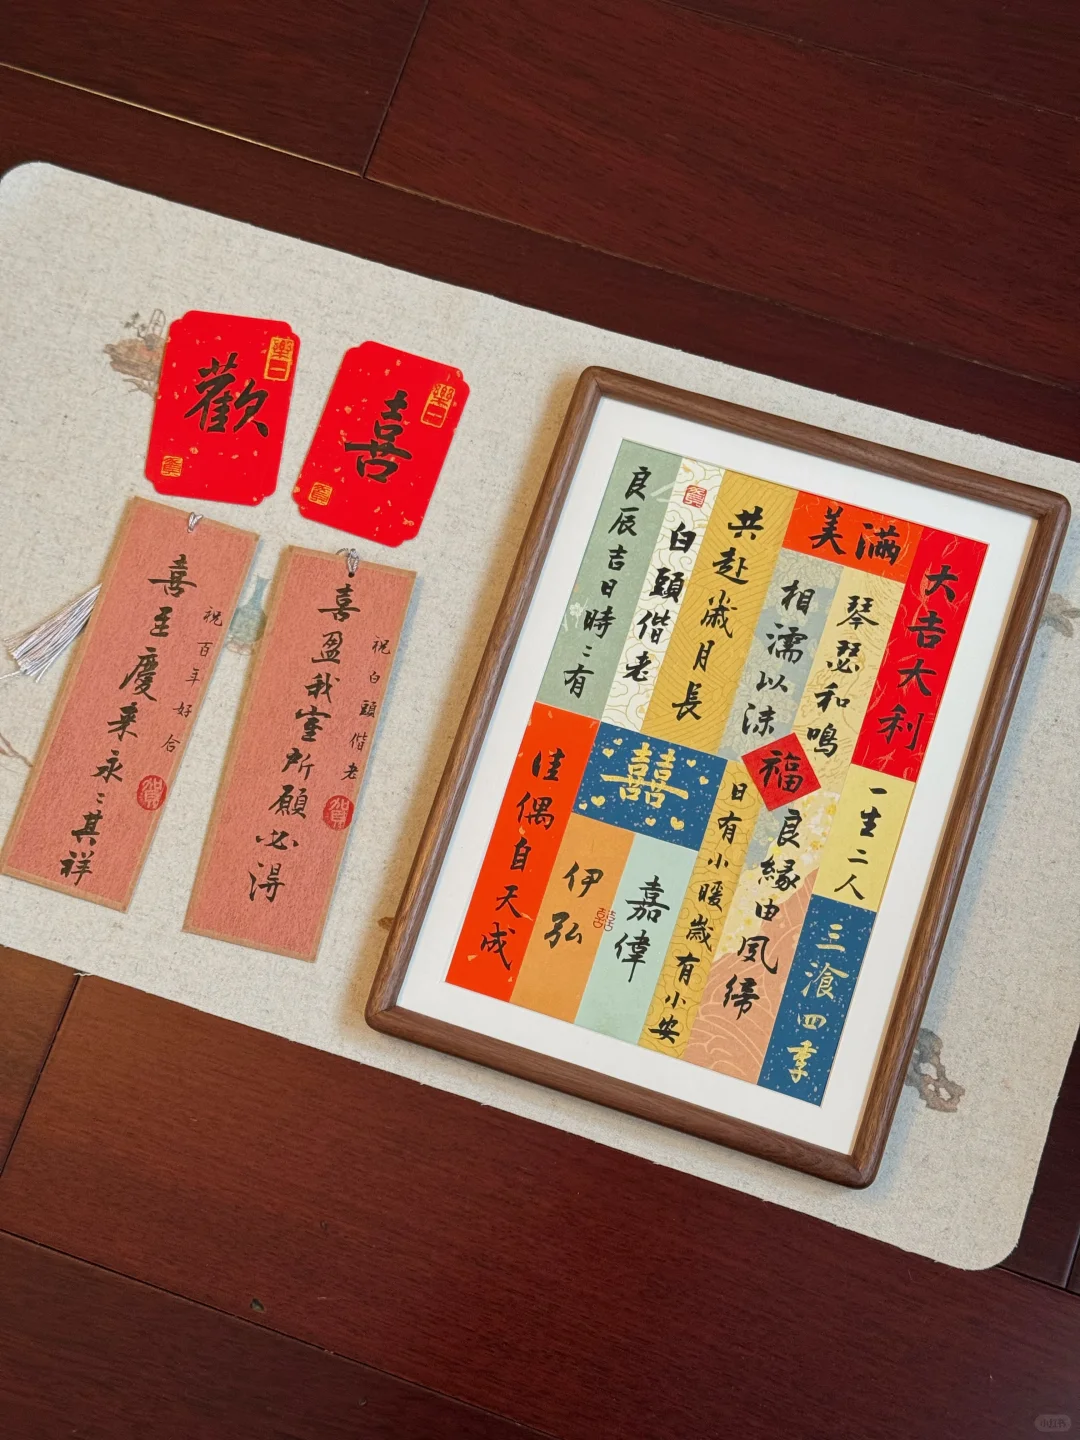 歡
喜
喜至慶来永〻其祥
祝百年好合
喜盈我室所願必得
祝白頭偕老
大吉大利
美滿
琴瑟和鳴
相濡以沫
共赴歲月長
白頭偕老
良辰吉日時〻有
福
一生二人
三飡四季
良緣由夙締
日有小暖歲有小安
囍
佳偶自天成
嘉偉
囍
伊弘
小红书